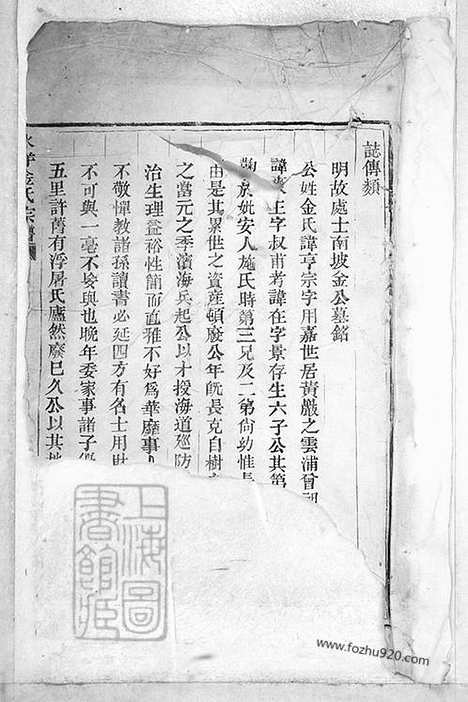 誌傳類
明故處士南坡金公墓銘
公姓金氏諱亨宗字用嘉世居黃巖之雲浦曾祖
諱 上字叔甫考諱在字景存生六子公其第
鞠於妣安人施氏時第三兄及二弟尚幼惟長
由是其累世之資產頓廢公年旣長克自樹
之當元之季濱海兵起公以才授海道廵防
治生理益裕性簡而直雅不好爲華靡事
不敬憚教諸孫讀書必延四方有名士用財
不可與一毫不妄與也晚年委家事諸子
五里許舊有浮屠氏廬然廢已久公以其地
氏宗譜
上海圖書館藏
www.fozhu920.com